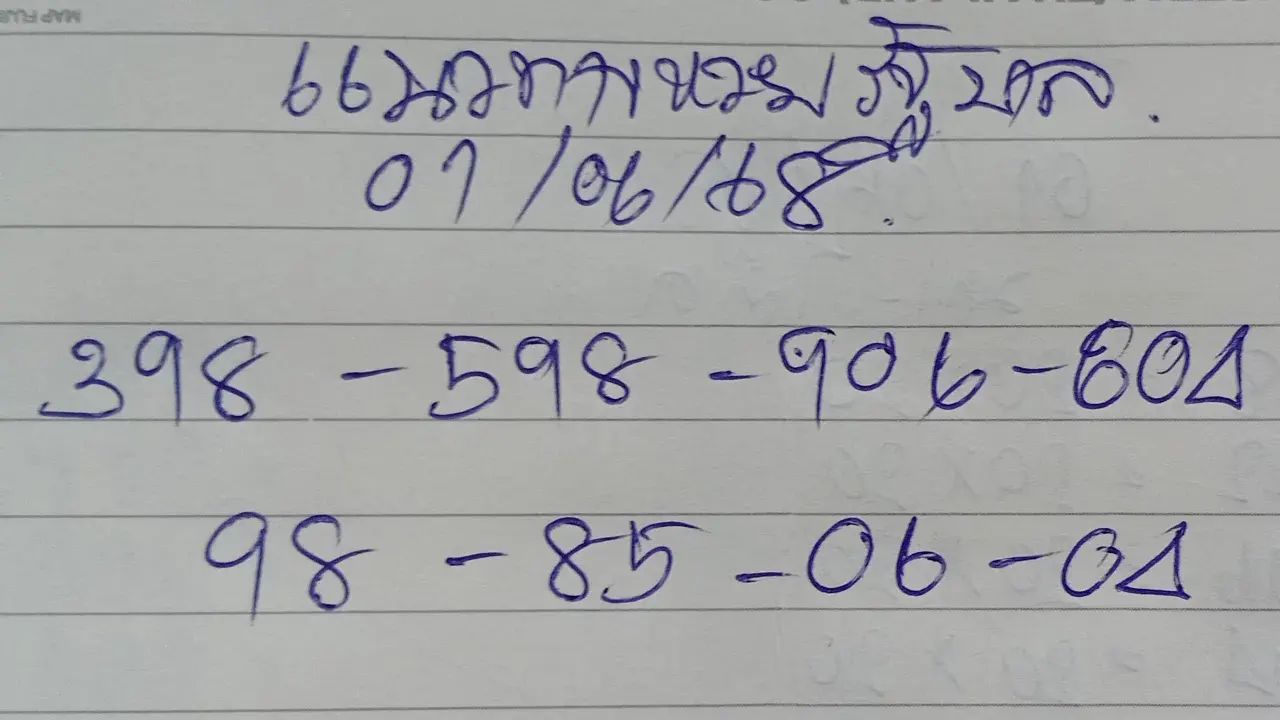 แนวทางหวยรัฐบาล.
01/06/68.
398 - 598 - 906 - 601
98 - 85 - 06 - 01